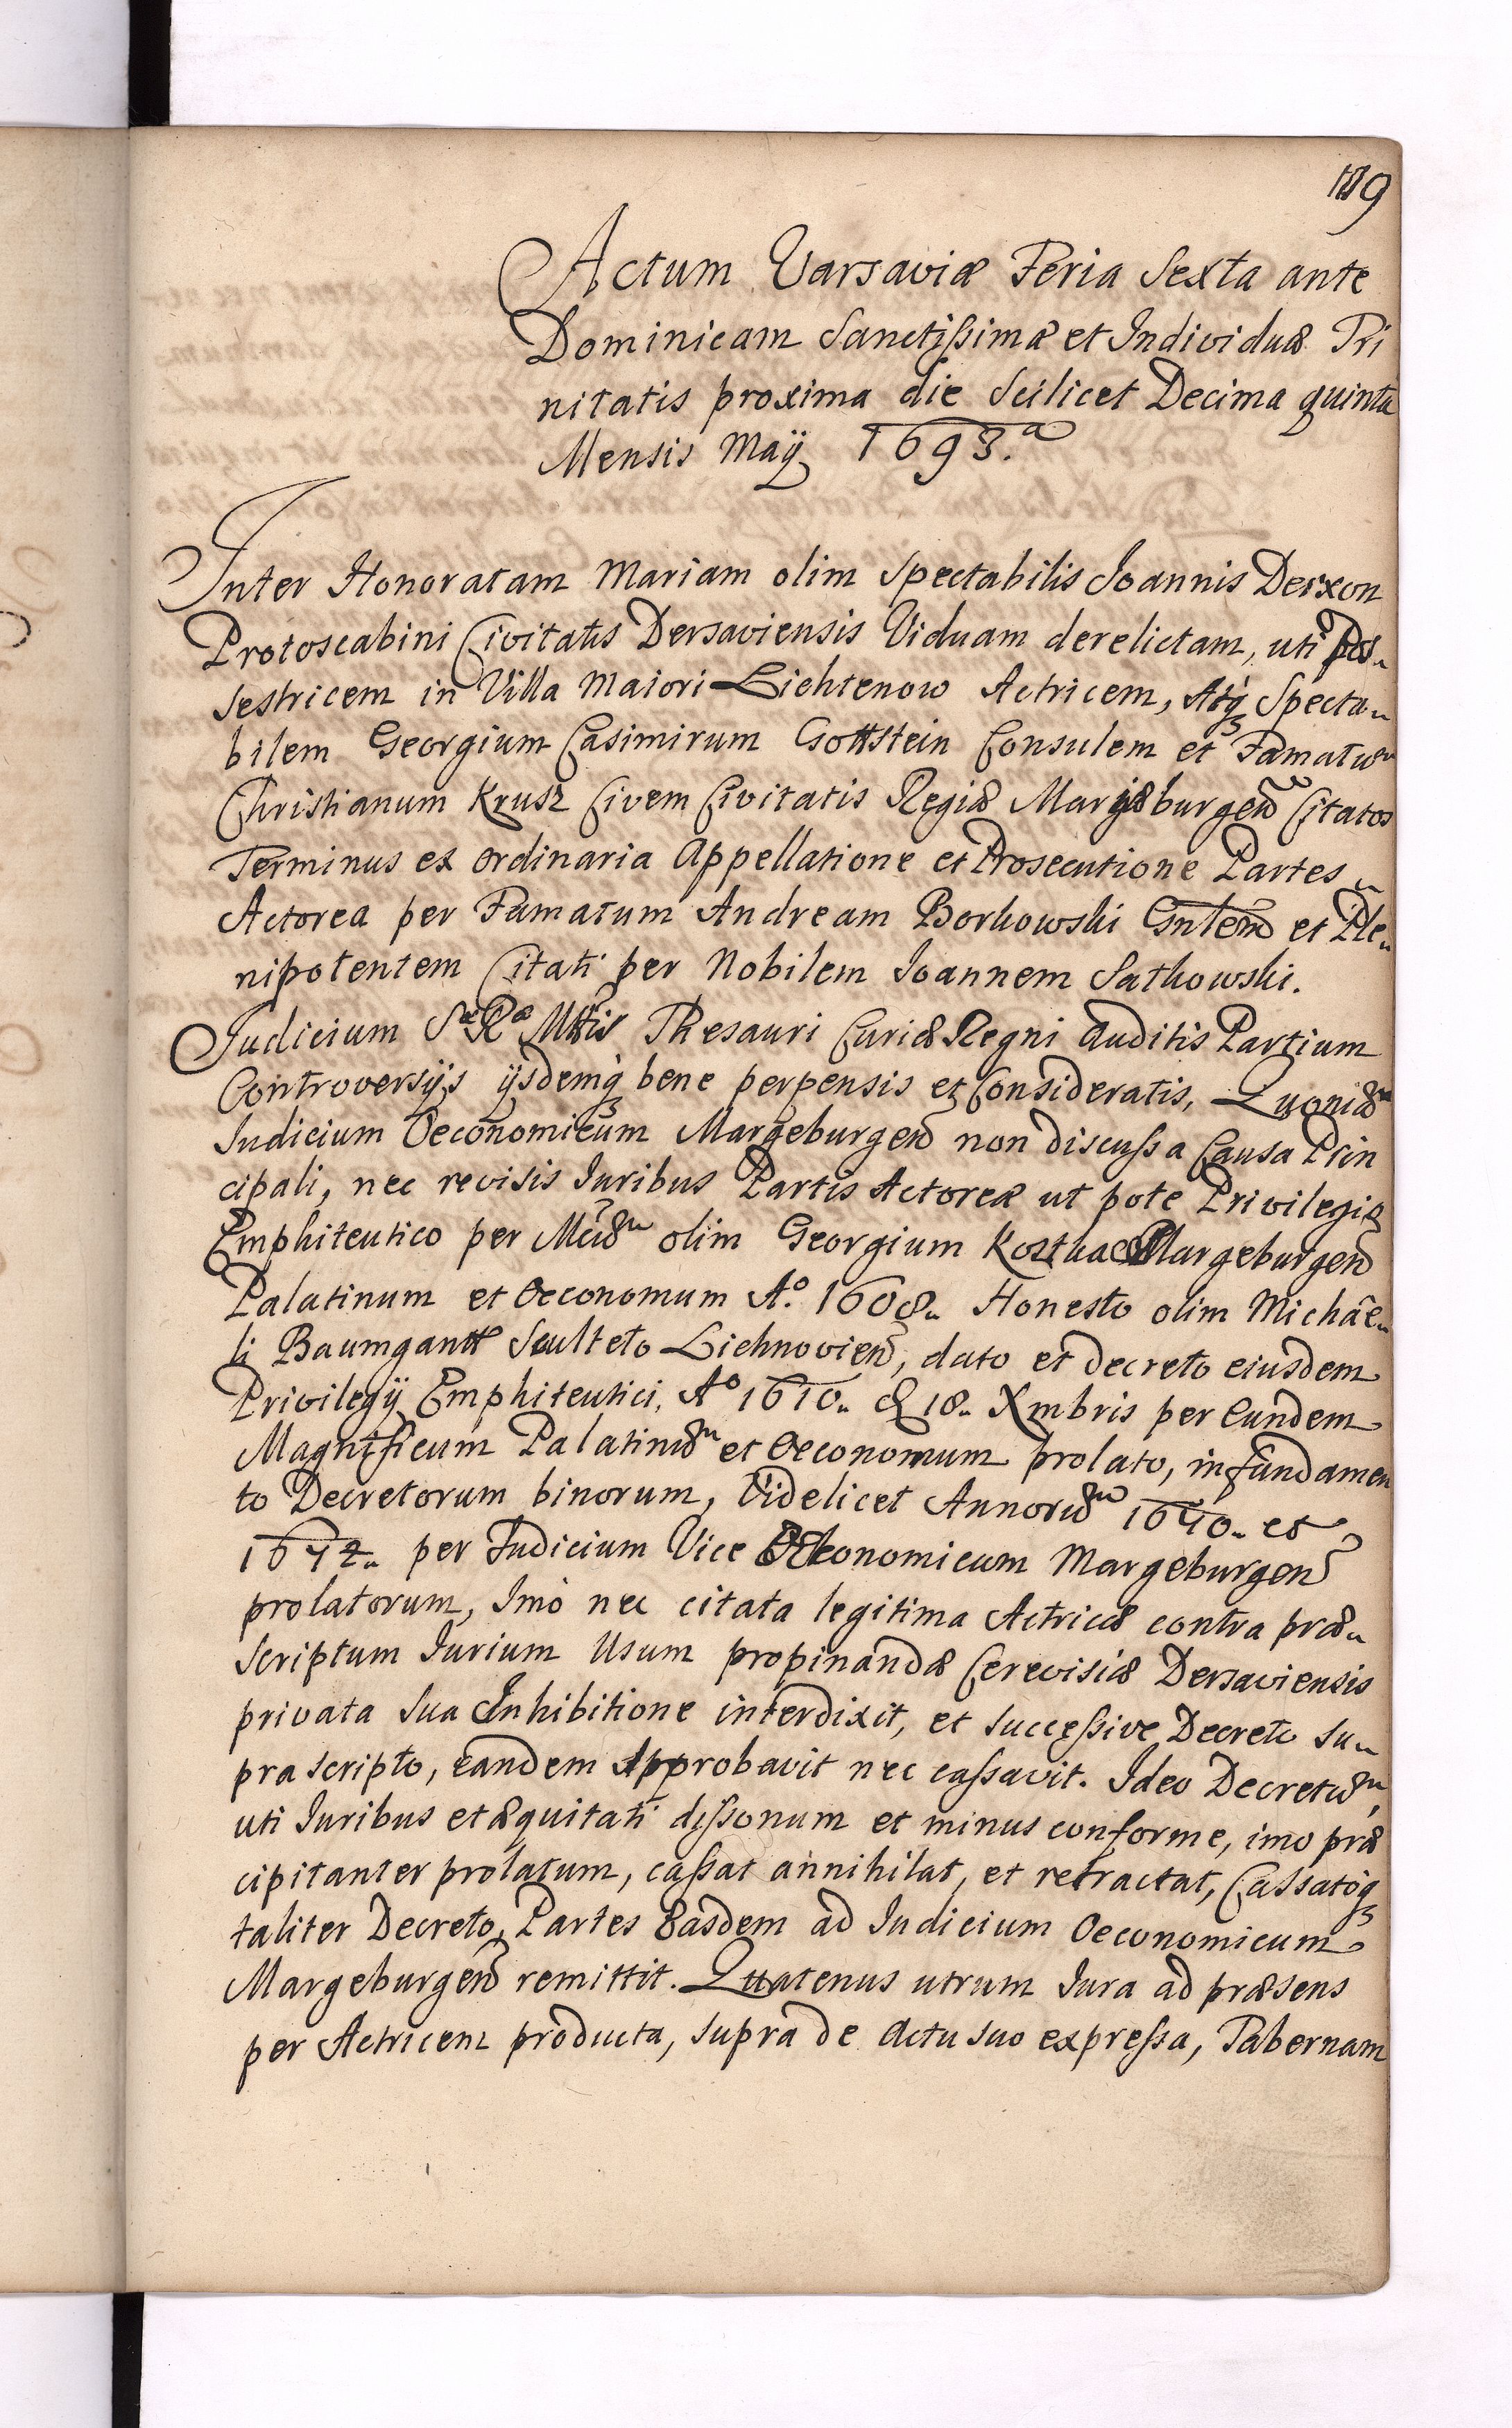 189
Actum Varsaviæ Feria Sexta ante
Dominicam Sanctissimæ et Individuæ Tri
nitatis proxima die Scilicet Decima quinta
Mensis Maÿ 1693.ᵃ
Inter Honoratam Mariam olim Spectabilis Joannis Derxon
Protoscabini Civitatis Dersaviensis Viduam derelictam, uti Pos„
sestricem in Villa Maiori Lichtenow Actricem, Atq́ꝫ Specta„
bilem Georgium Casimirum Gottstein Consulem et Famatũ
Christianum Krusz Civem Civitatis Regiæ Margæburgeñ Citatos
Terminus ex Ordinaria Appellatione et Prosecutione Partes„
Actorea per Famatum Andream Borkowski Gnlem̃ et Ple„
nipotentem Citati per Nobilem Joannem Satkowski.
Judicium Sæ Ræ Mttis Thesauri Curiæ Regni Auditis Partium
Controversÿs ÿsdemq́ꝫ bene perpensis et Consideratis, Quoniã
Judicium Oeconomicum Margeburgeñ non discussa Causa Prin
cipali, nec revisis Juribus Partis Actoreæ ut pote Privilegio
Emphiteutico per Mcũ olim Georgium Kostka Margeburgeñ
Palatinum et Oeconomum Aº. 1608„ Honesto olim Michâe„
li Baumgantt Sculteto Lichnovieñ, dato et decreto eiusdem
Privilegÿ Emphiteutici, Aº 1610„ d 18„ Xmbris per Eundem
Magnificum Palatinũ et Oeconomum prolato, in fundamen
to Decretorum binorum, Videlicet Annorũ 1640„ et
1642„ per Judicium Vice Oeconomicum Margeburgeñ
prolatorum, Imò nec citata legitima Actrice contra præ„
scriptum Jurium Usum propinandæ Cerevisiæ Dersaviensis
privata sua Inhibitione interdixit, et successive Decreto su„
pra scripto, eandem Approbavit nec cassavit. Ideo Decretũ,
uti Juribus et æquitati dissonum et minus conforme, imo præ
cipitanter prolatum, cassat annihilat, et retractat, Cassatóqꝫ
taliter Decreto, Partes Easdem ad Judicium Oeconomicum
Margeburgeñ remittit. Quatenus utrum Jura ad præsens
per Actricem producta, supra de Actu suo expressa, Tabernam